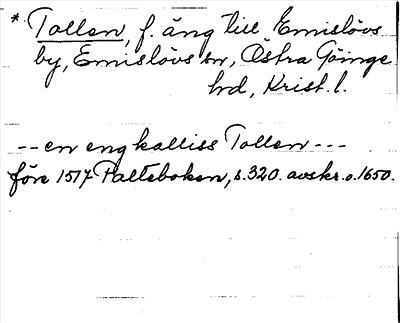 * Tollen, f. äng till Emislövs
by, Emislövs sn, Östra Göinge
hd, Krist. l.
-- en eng kalliss Tollen ---
före 1517 Palteboken, s. 320. avskr. o. 1650.